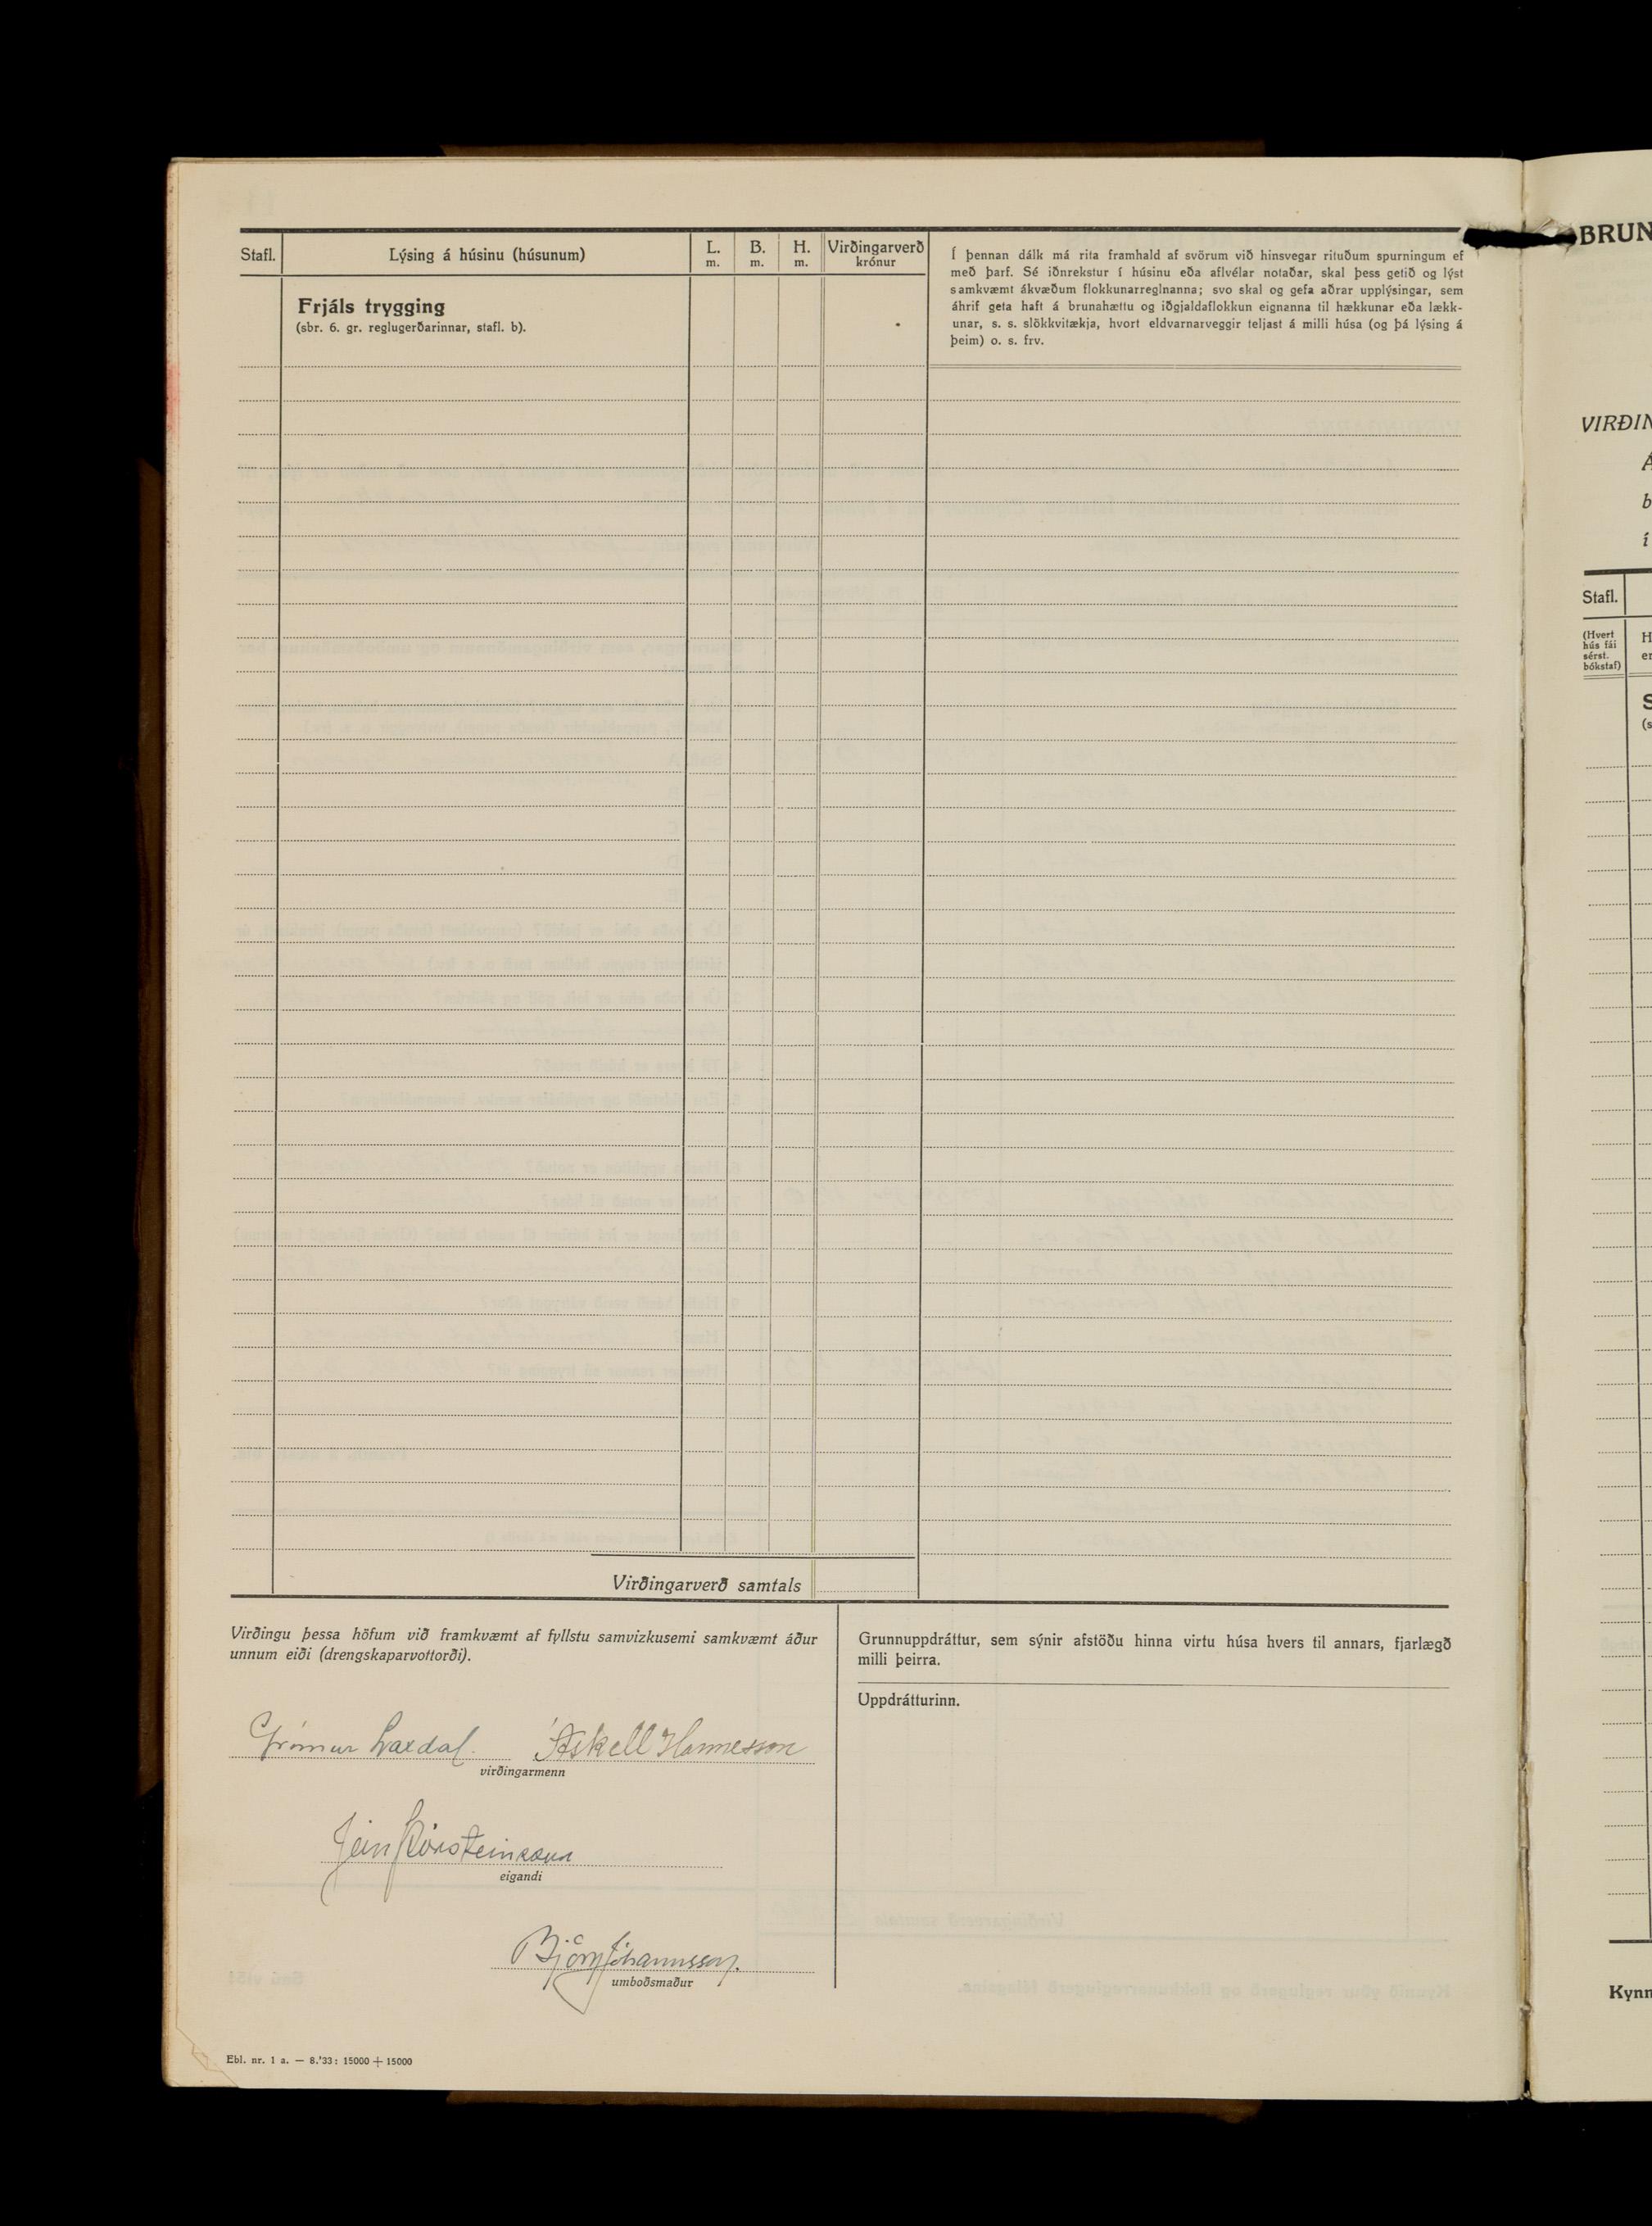 Stafl.
Lýsing á húsinu (húsunum)
L.
m.
B.
m.
H.
m.
Virðingarverð
krónur
Frjáls trygging
(sbr. 6. gr. reglugerðarinnar, stafl. b).
Í þennan dálk má rita framhald af svörum við hinsvegar rituðum spurningum ef
með þarf. Sé iðnrekstur í húsinu eða aflvélar notaðar, skal þess getið og lýst
samkvæmt ákvæðum flokkunarreglnanna; svo skal og gefa aðrar upplýsingar, sem
áhrif geta haft á brunahættu og iðgjaldaflokkun eignanna til hækkunar eða lækk-
unar, s. s. slökkvitækja, hvort eldvarnarveggir teljast á milli húsa (og þá lýsing á
þeim) o. s. frv.
Virðingarverð samtals
Virðingu þessa höfum við framkvæmt af fyllstu samvizkusemi samkvæmt áður
unnum eiði (drengskaparvottorði).
Grímur Laxdal. Áskell Hannesson
virðingarmenn
Þórsteinsson
eigandi
Björn Jóhannsson.
umboðsmaður
Grunnuppdráttur, sem sýnir afstöðu hinna virtu húsa hvers til annars, fjarlægð
milli þeirra.
Uppdrátturinn.
Ebl. nr. 1 a. — 8.'33: 15000 + 15000
BRUN
VIRÐIN
Stafl.
(Hvert
hús fái
sérst.
bókstaf)
Kynn